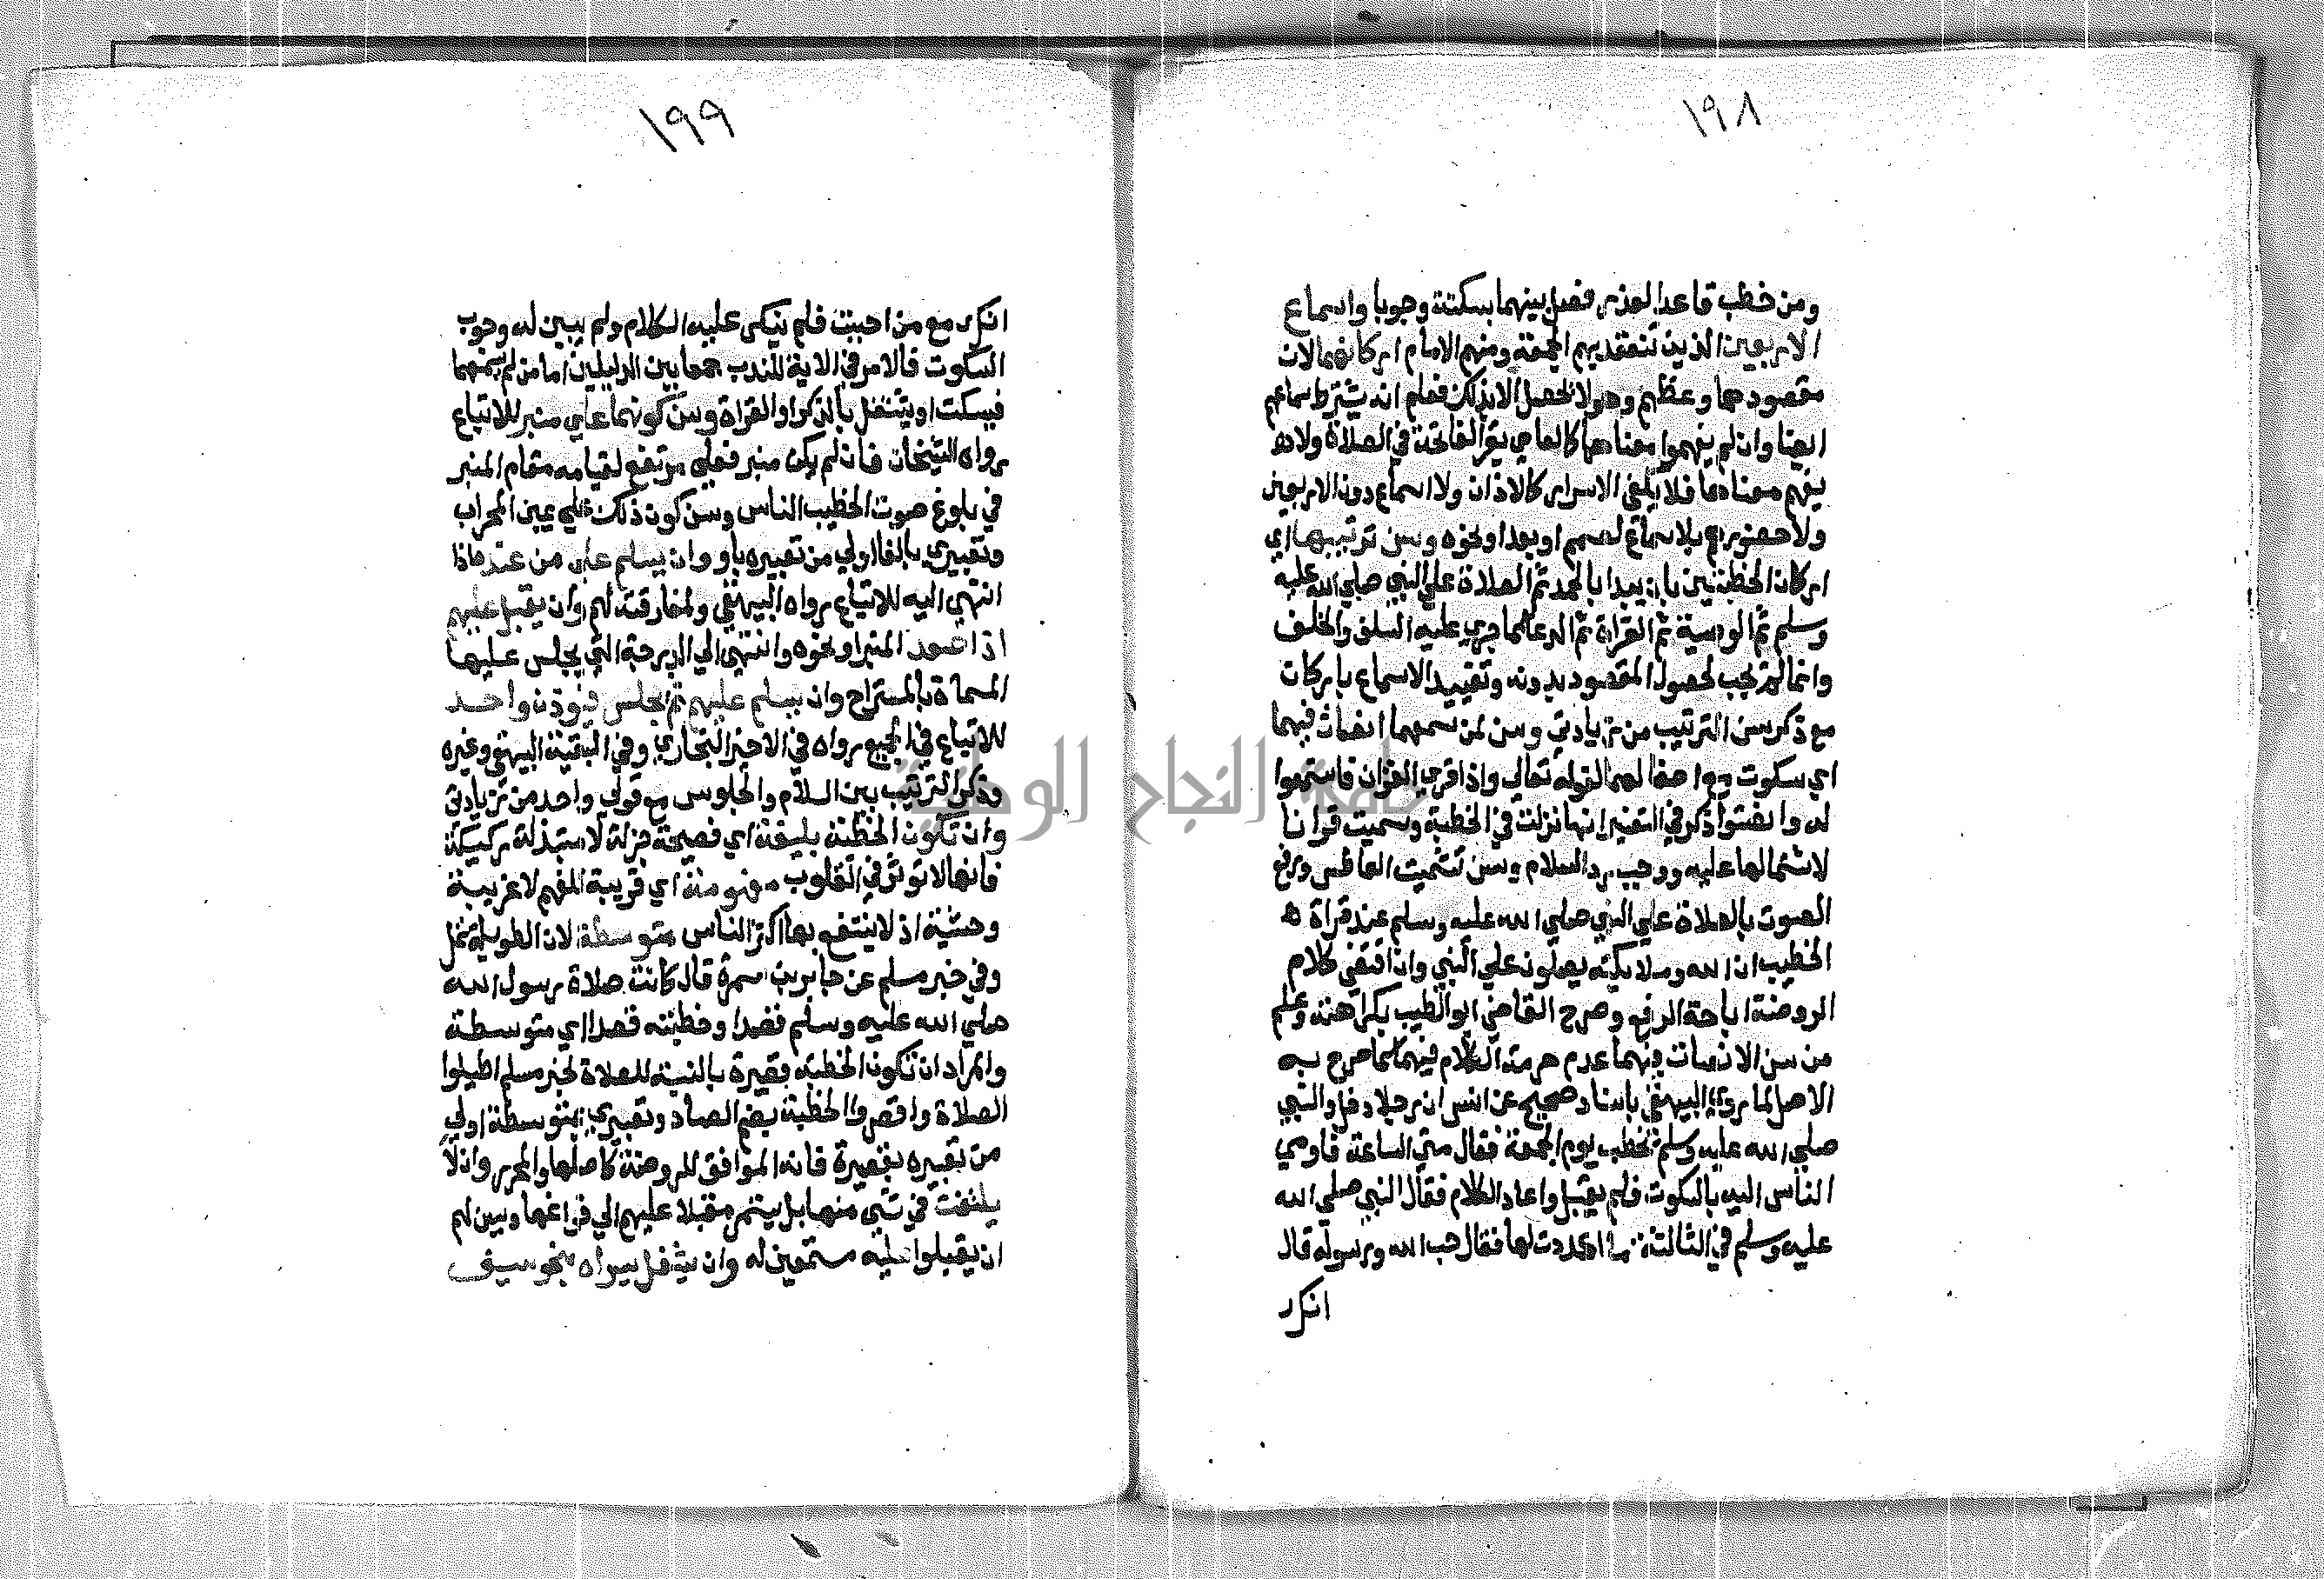 ١٩٨
ومن خطب قاعدا لعذر فصل بينهما بسكتة وجوبا واسماع
الاربعين الذين تنعقد بهم الجمعة ومنهم الامام اركانهما لان
مقصودهما وعظهم وهو لا يحصل الا بذلك فعلم انه يشترط سماعهم
ايضا وان لم يفهموا معناهما كالعامي يقرأ الفاتحة في الصلاة ولا
يفهم معناها فلا يكفي الاسرار كالاذان ولا اسماع دون الاربعين
ولا حضورهم بلا سماع لصمم او بعد او نحوه وسن ترتيبها اي
اركان الخطبتين بان يبدا بالحمد ثم الصلاة علي النبي صلي الله عليه
وسلم ثم الوصية ثم القراة ثم الدعا كما جري عليه السلف والخلف
وانما لم يجب لحصول المقصود بدونه وتقييد الاسماع باركان
مع ذكر سن الترتيب من زيادتي وسن لمن سمعهما انصات فيهما
اي سكوت مع اصغا لهما لقوله تعالي واذا قري القران فاستمعوا
له وانصتوا ذكر في التفسير انها نزلت في الخطبة وسميت قرانا
لاشتمالها عليه ووجب رد السلام وسن تشميت العاطس ورفع
الصوت بالصلاة علي النبي صلي الله عليه وسلم عند قراة
الخطيب ان الله وملايكته يصلون علي النبي وان اقتضي كلام
الروضة اباحة الرفع وصرح القاضي ابو الطيب بكراهته وعلم
من سن الانصات فيهما عدم حرمة الكلام فيهما كما صرح به
الاصل لما روي البيهقي باسناد صحيح عن انس ان رجلا دخل والنبي
صلي الله عليه وسلم يخطب يوم الجمعة فقال متي الساعة فاومي
الناس اليه بالسكوت فلم يقبل واعاد الكلام فقال النبي صلي الله
عليه وسلم في الثالثة ما اعددت لها فقال حب الله ورسوله قال
انك
١٩٩
انك مع من احببت فلم ينكر عليه الكلام ولم يبين له وجوب
السكوت فالامر في الاية للندب جمعا بين الدليلين اما من لم يسمعهما
فيسكت او يشتغل بالذكر او القراة وسن كونهما علي منبر للاتباع
رواه الشيخان فان لم يكن منبر فعلي مرتفع لقيامه مقام المنبر
في بلوغ صوت الخطيب الناس وسن كون ذلك علي يمين المحراب
وتعبيري بالفا اولي من تعبيره باو وان يسلم علي من عنده اذا
انتهي اليه للاتباع رواه البيهقي ولمفارقته لهم وان يقبل عليهم
اذا صعد المنبر او نحوه وانتهي الي الدرجة التي يجلس عليها
المسماة بالمستراح وان يسلم عليهم ثم يجلس فيوذن واحد
للاتباع في الجميع رواه في الاخير البخاري وفي البقية البيهقي وغيره
وذكر الترتيب بين السلام والجلوس مع قولي واحد من زيادتي
وان تكون الخطبة بليغة اي فصيحة جزلة لا مبتذلة ركيكة
فانها لا توثر في القلوب مفهومة اي قريبة للفهم لا غريبة
وحشية اذ لا ينتفع بها اكثر الناس متوسطة لان الطويلة تمل
وفي خبر مسلم عن جابر بن سمرة قال كانت صلاة رسول الله
صلي الله عليه وسلم قصدا وخطبته قصدا اي متوسطة
والمراد ان تكون الخطبة قصيرة بالنسبة للصلاة لخبر مسلم اطيلوا
الصلاة واقصروا الخطبة بضم الصاد وتعبيري بمتوسطة اولي
من تعبيره بقصيرة فانه الموافق للروضة كاصلها والمحرر وان لا
يلتفت في شي منها بل يستمر مقبلا عليهم الي فراغها وسن لهم
ان يقبلوا عليه مستمعين له وان يشغل يسراه بنحو سيف
جامعة النجاح الوطنية